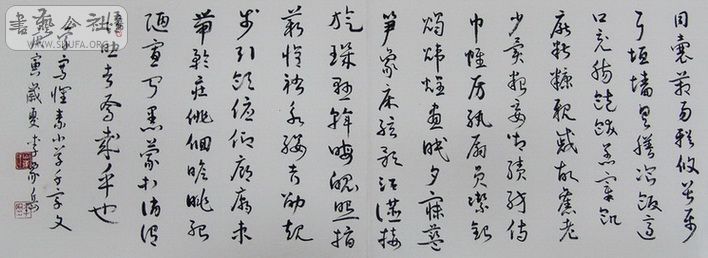 目囊箱易輶攸畏屬
耳垣墙具膳飡飯適
口充腸飽飫烹宰飢
厭糟糠親戚故舊老
少異粮妾御績紡侍
巾帷房紈扇員潔銀
燭煒煌晝眠夕寐藍
笋象床弦歌酒讌接
旋璣懸斡晦魄照指
薪修祜永綏吉劭矩
步引領俯仰廊廟束
帶矜莊徘徊瞻眺孤
陋寡聞愚蒙等誚謂
語助者焉哉乎也
写懷素小草千字文
寅歲夏
書藝公社
WWW.SHUFA.ORG